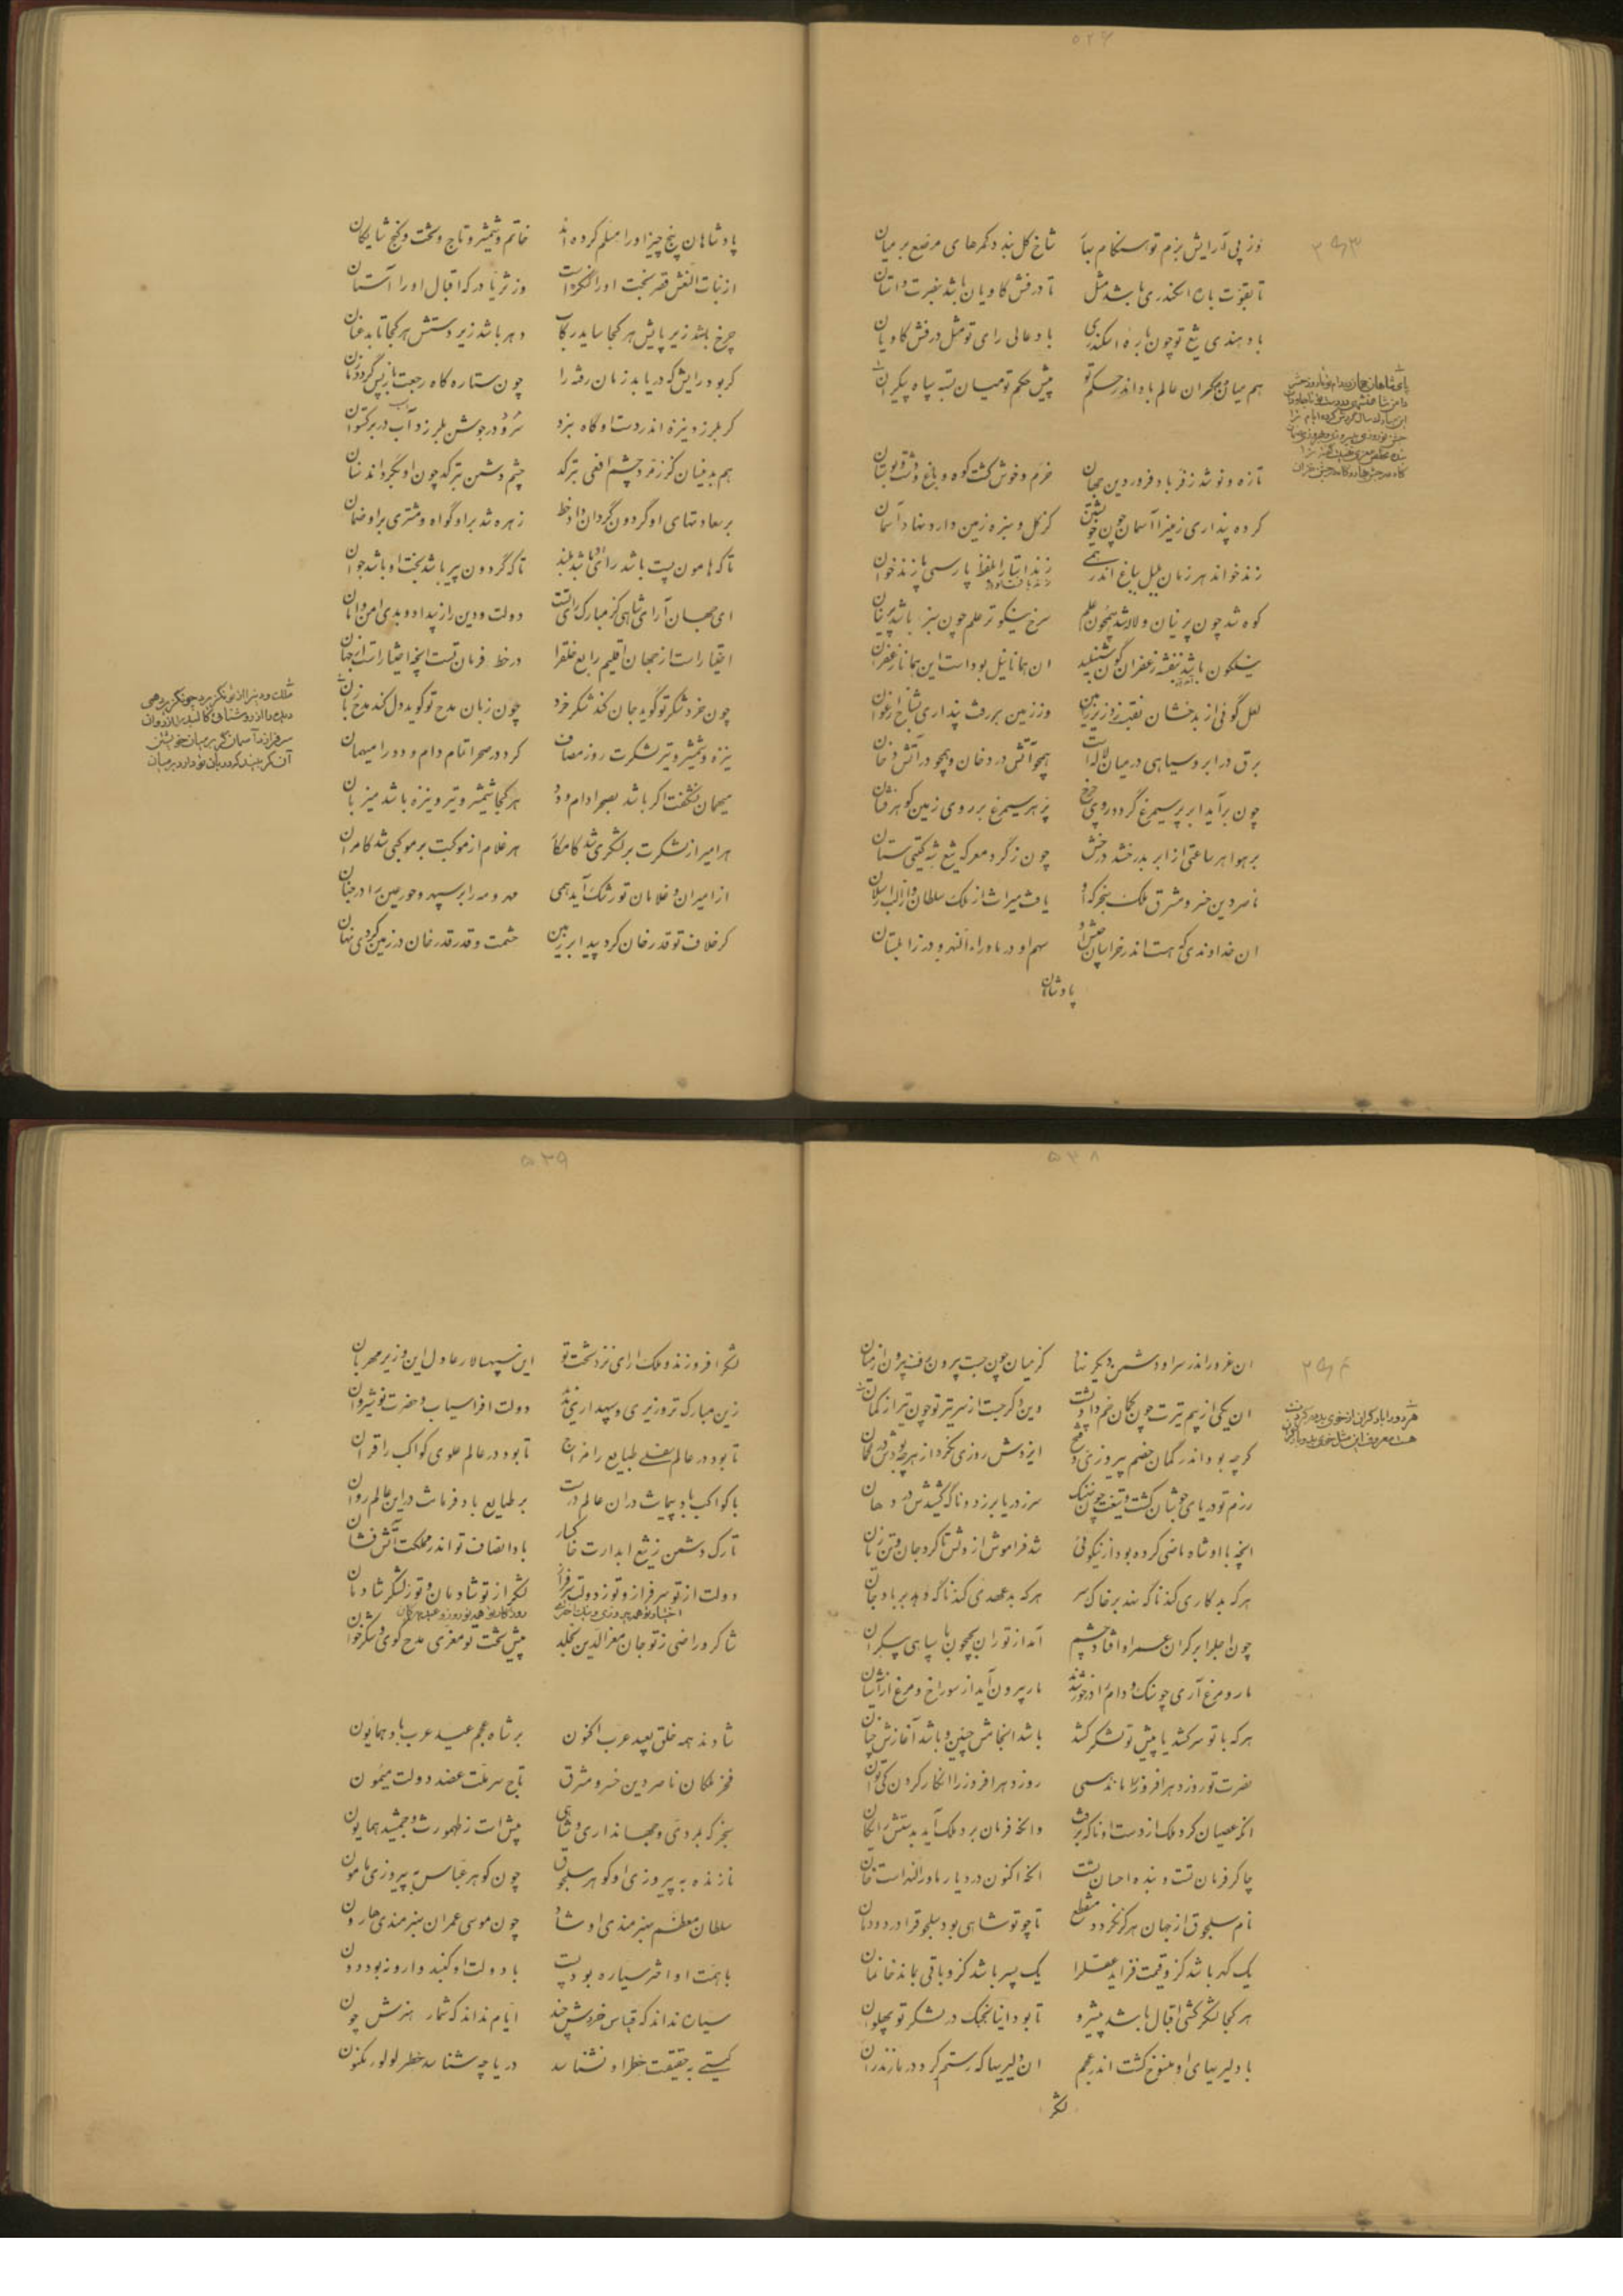 ۵۲۶
وز پی آرایش بزم تو هنگام بهار شاخ گل بندد کمرهای مرصع بر میان
تا بقوت باره اسکندری باشد مثل تا درفش کاویان باشد بنصرت داستان
باد هندی تیغ تو چون باره اسکندری باد عالی رای تو مثل درفش کاویان
هم میان مهتران عالم باد اندر حکم تو پیش حکم تو میان بسته سپاه بیکران
تازه و نو شد ز فر باد فروردین جهان خرم و خوش گشت کوه و باغ و دشت و بوستان
کرده پنداری زمین را آسمان چون خویشتن کز گل و سبزه زمین دارد نهاد آسمان
زند خواند هر زمان بلبل بباغ اندر همی زند استا را بلفظ پارسی پازند خوان
کوه شد چون پرنیان و لاله شد همچون علم سرخ نیکوتر علم چون سبز باشد پرنیان
نیلگون باشد بنفشه زعفران گون شنبلید آن همانا نیل بوداست این همانا زعفران
لعل گوئی از بدخشان نقب زد زیر زمین وز زمین بر رفت پنداری بشاخ ارغوان
برق در ابر و سیاهی در میان لاله است همچو آتش در دخان و همچو در آتش دخان
چون برآید ابر پر سیمرغ گردد روی چرخ پر هر سیمرغ بر روی زمین گوهر فشان
بر هوا هر ساعتی از ابر بدرخشد درخش چون ز گرد معرکه تیغ شه گیتی ستان
ناصر دین خسرو مشرق ملک سنجر که او یافت میراث از ملک سلطان و از الب ارسلان
آن خداوندی که هست اندر خراسان جیش او سهم او در ماوراءالنهر و در زابلستان
پادشاهان
پادشاهان پنج چیز او را مسلم کرده اند خاتم و شمشیر و تاج و تخت و گنج شایگان
از بنات النعش قصر بخت او را کنگره است وز ثریا درگه اقبال او را آستان
چرخ باشد زیر پایش هر کجا ساید رکاب دهر باشد زیر دستش هر کجا تابد عنان
گر بود رایش که دریابد زمان رفته را چون ستاره گاه رجعت باز پس گردد زمان
گر بلرزد نیزه اندر دست او گاه نبرد
هم بدینسان کز زمرد چشم افعی بترکد چشم دشمن بترکد چون او بگرداند سنان
بر سعادتهای او گردون گردان داد خط زهره شد بر او گواه و مشتری بر او ضمان
تا که هامون پست باشد رای او باشد بلند تا که گردون پیر باشد بخت او باشد جوان
ای جهان آرای شاهی کز مبارک رای تست دولت و دین را ز بیداد و بدی امن و امان
اختیار است از جهان اقلیم رابع خلق را در خط فرمان تست آنچه اختیار است از جهان
چون خرد شکر تو گوید جان کند شکر خرد چون زبان مدح تو گوید دل کند مدح زبان
نیزه و شمشیر و تیر لشکرت روز مصاف کرد در صحرا تمام دام و دد را میهمان
میهمان نشگفت اگر باشد بصحرا دام و دد هر کجا شمشیر و تیر و نیزه باشد میزبان
هر امیر از لشکرت بر لشکری شد کامکار هر غلام از موکبت بر موکبی شد کامران
از امیران و غلامان تو رشک آید همی مهر و مه را بر سپهر و حور عین را در جنان
گر خلاف تو قدرخان کرد پیدا بر زمین حشمت و قدر قدرخان در زمین کردی نهان
۵۳۸
آن غرور اندر سر او دشمن دیگر نهاد کز میان چون جست بیرون رفت بیرون از میان
آن یکی از بیم تیرت چون کمان خم داد پشت وین دگر جست از سر تیر تو چون تیر از کمان
گرچه بود اندر گمان خصم پیروزی و فتح ایزدش روزی نکرد از هر چه بودش در گمان
رزم تو دریای جوشان گشت و تیغت چون نهنگ سر ز دریا برزد و ناگه کشیدش در دهان
آنچه با او شاه ماضی کرده بود از نیکوئی شد فراموش از دلش تا کرد جان و تن زیان
هر که بد کاری کند ناگه نهد بر خاک سر هر که بد عهدی کند ناگه دهد بر باد جان
چون اجل را بر کران عمر او افتاد چشم آمد از توران بجیحون با سپاهی بیکران
مار و مرغ آری چو سنگ و دام را در خور شدند مار بیرون آید از سوراخ و مرغ از آشیان
هر که با تو سر کشد یا پیش تو لشکر کشد باشد انجامش چنین و باشد آغازش چنان
نصرت تو روز دهر افروز را ماند همی روز دهر افروز را انکار کردن کی توان
آنکه عصیان کرد ملک از دست او ناگه برفت وانکه فرمان برد ملک آید بدستش رایگان
چاکر فرمان تست و بنده احسان تست آنکه اکنون در دیار ماوراءالنهر است خان
نام سلجوق از جهان هرگز نگردد منقطع تا چو تو شاهی بود سلجوق را در دودمان
یک گهر باشد کزو قیمت فزاید عقد را یک پسر باشد کزو باقی بماند خانمان
هر کجا لشکر کشی اقبال باشد پیشرو تا بود اینانج بک در لشکر تو پهلوان
با دلیریهای او منسوخ گشت اندر عجم آن دلیریها که رستم کرد در مازندران
لشکر
۵۳۹
لشکر افروزند و ملک آرای نزد تخت تو این سپهسالار عادل این وزیر مهربان
زین مبارکتر وزیری و سپهداری ندید دولت افراسیاب و حضرت نوشیروان
تا بود در عالم سفلی طبایع را مزاج تا بود در عالم علوی کواکب را قران
با کواکب باد پیمانت در آن عالم درست بر طبایع باد فرمانت در این عالم روان
تارک دشمن ز تیغ آبدارت خاکسار باد انصاف تو اندر مملکت آتش فشان
دولت از تو سرفراز و تو ز دولت سرفراز لشکر از تو شادمان و تو ز لشکر شادمان
شاکر و راضی ز تو جان معز الدین بخلد پیش تخت تو معزی مدح گوی و شکر خوان
شادند همه خلق بعید عرب اکنون بر شاه عجم عید عرب باد همایون
فخر ملکان ناصر دین خسرو مشرق تاج سر ملت عضد دولت میمون
سنجر که بمردی و جهانداری و شاهی بیش است ز طهمورث و جمشید همایون
نازنده به پیروزی او گوهر سلجوق چون گوهر عباس به پیروزی مامون
سلطان معظم بهنرمندی او شاد چون موسی عمران بهنرمندی هارون
با همت او اختر سیاره بود پست با دولت او گنبد دوار بود دون
سیاره نداند که قیاس خردش چند ایام نداند که شمار هنرش چون
گیتی به حقیقت خطر او نشناسد دریا چه شناسد خطر لولو مکنون